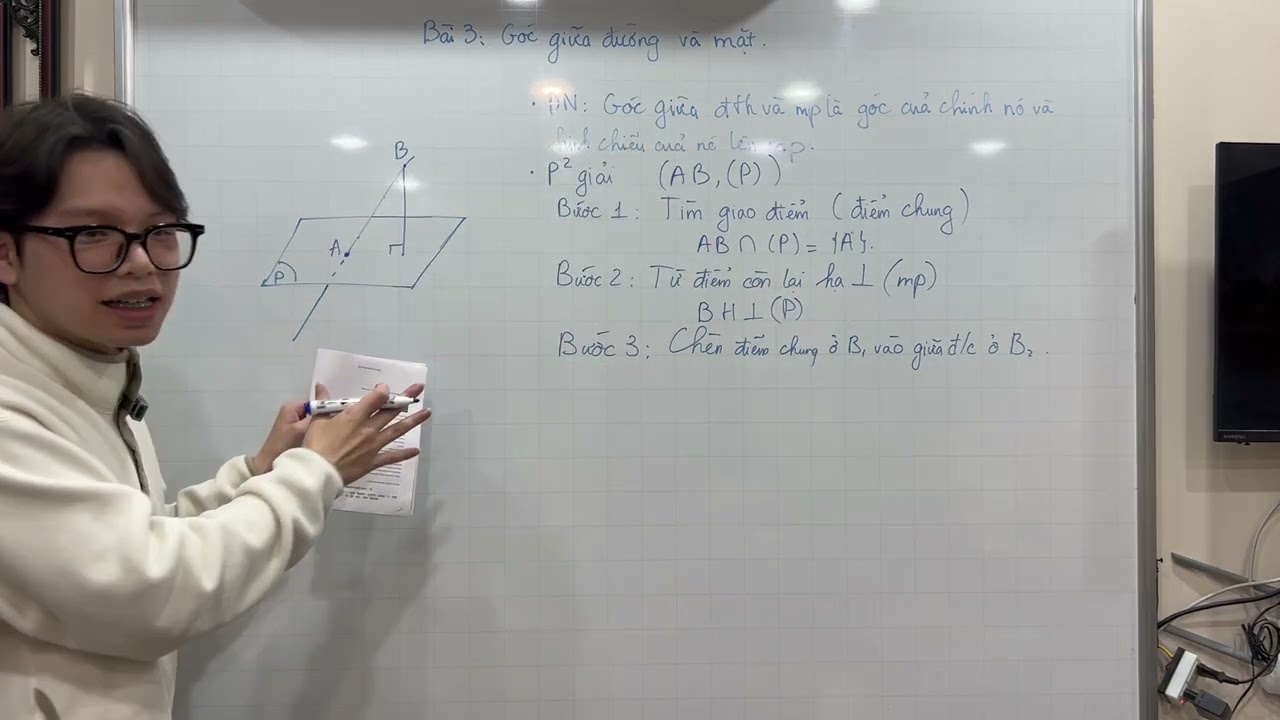 Bài 3: Góc giữa đường và mặt.
• ĐN: Góc giữa đth và mp là góc của chính nó và
hình chiếu của nó lên mp.
• P² giải (AB, (P))
Bước 1: Tìm giao điểm (điểm chung)
AB ∩ (P) = {A}.
Bước 2: Từ điểm còn lại hạ ⊥ (mp)
BH ⊥ (P)
Bước 3: Chèn điểm chung ở B₁ vào giữa đ/c ở B₂.
B
A
P